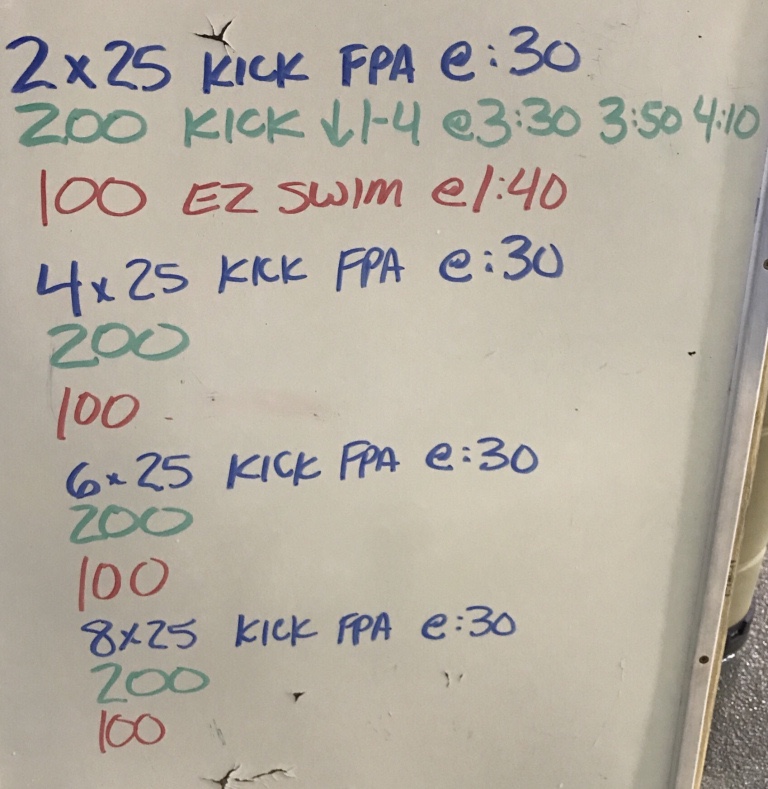 2x25 KICK FPA @:30
200 KICK ↓1-4 @3:30 3:50 4:10
100 EZ SWIM @1:40
4x25 KICK FPA @:30
200
100
6x25 KICK FPA @:30
200
100
8x25 KICK FPA @:30
200
100